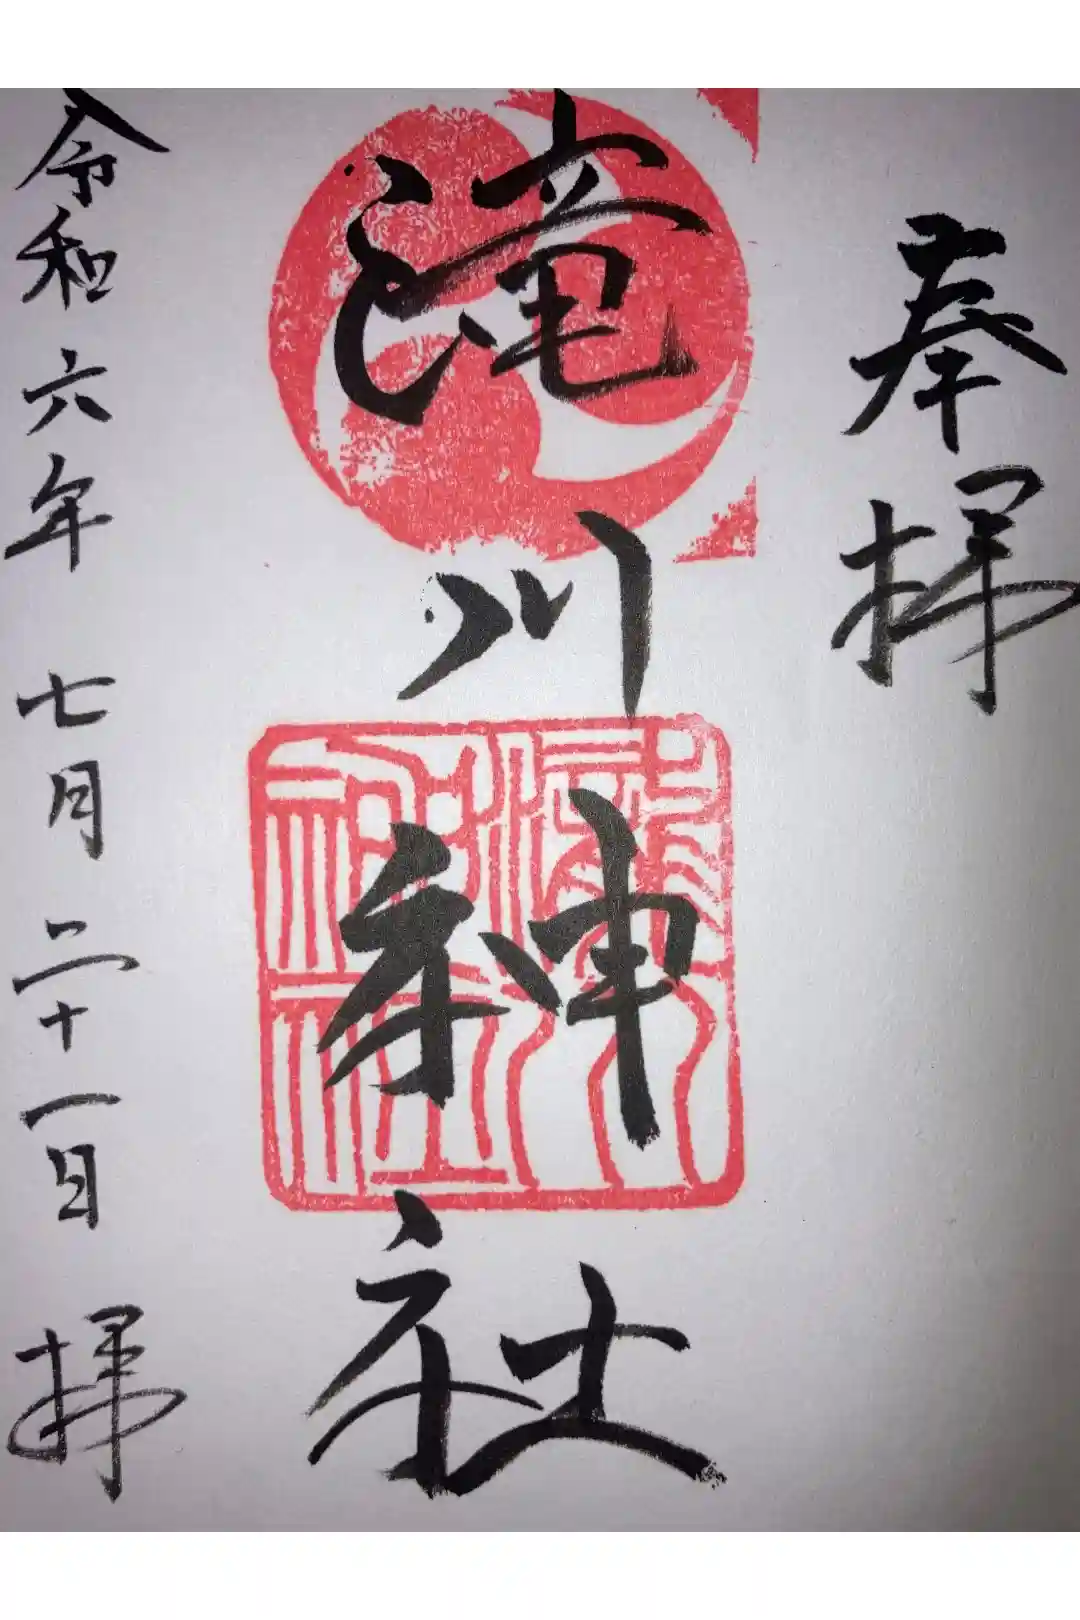 奉拝
滝川神社
令和六年 七月二十一日 拝